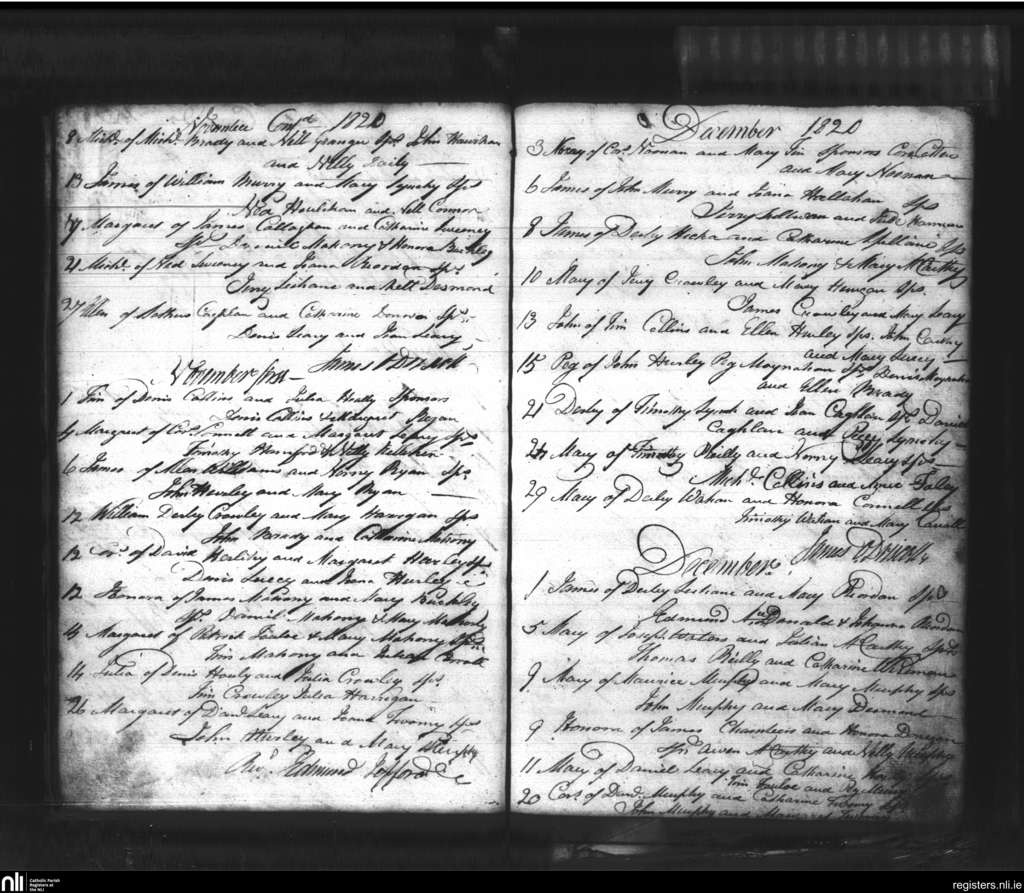 November Contd 1820
8 Michl. of Michl. Brady and Nell Granger Sps. John Hourihan
and Nelly Daily
13 James of William Murry and Mary Lynchy Sps
Ned Houlihan and Nell Connor
19 Margaret of James Callaghan and Catharine Sweeney
Sps. Dennis Mahony & Honora Buckley
21 Michl. of Ned Sweeney and Joana Riordan Sps.
Jerry Leehane and Nell Desmond
27 Ellen of Coghlan and Catharine Donovan Sps.
Denis Leary and Joan Leary
James O Driscoll
November first
1 Tim of Denis Collins and Julia Healy Sponsors
Denis Collins & Margaret Regan
4 Margret of Corns. Connell and Margaret Sps
Timothy and Nelly Kelleher
6 James of Allen Williams and Norry Ryan Sps.
John Hurley and Mary Ryan
12 William Derly Crowley and Mary Harrigan Sps
John Brady and Catharine Mahony
12 Cors. of David and Margaret Hurley Sps
Denis Lucey and Joana Hurley
12 Honora of James Mahony and Mary Buckley
Sps. Daniel Mahony & Mary Mahony
14 Margaret of Patrick & Mary Mahony Sps.
Tim Mahony and Julian Carroll
14 Julia of Denis Hauly and Julia Crowley Sps
Tim Crowley Julia Harrigan
26 Margaret of Danl. Leary and Joana Twomy Sps
John Hurley and Mary Murphy
Revd. Edmund
December 1820
3 Norry of Cors. Noonan and Mary Sponsors
and Mary Noonan
6 James of John Murry and Joana Hallahan Sps
Jerry Sullivan and
8 James of Derby and Catharine Mullane Sps
John Mahony & Mary McCarthy
10 Mary of Jerry Crowley and Mary Sps.
James Crowley and Mary Leary
13 John of Tim Collins and Ellen Hurley Sps. John Carthy
and Mary Lucey
15 Peg of John Hurley Peg Moynahan Sps Denis Moynahan
and Ellen Brady
21 Derby of Timothy Lynch and Joan Caghlan Sps Daniel
Caghlan and Peggy
24 Mary of Timothy Reilly and Norry Leary Sps
Michl. Collins and
29 Mary of Derby Watson and Honora Connell Sps
Timothy Watson and Mary
James O Driscoll
December
1 James of Derby Leehane and Mary Riordan Sps
Edmund McDonald & Johanna Riordan
5 Mary of Joseph Waters and Julian McCarthy Sps
Thomas Reilly and Catharine
9 Mary of Maurice Murphy and Mary Murphy Sps
John Murphy and Mary Desmond
9 Honora of James Chambers and Honora
Sps. Owen McCarthy and Nelly Murphy
11 Mary of Daniel Leary and Catharine
Tim and Peg
20 Cors. of Danl. Murphy and Catharine Twomy Sps
John Murphy and Margaret
nli
Catholic Parish
Registers at
the NLI
registers.nli.ie